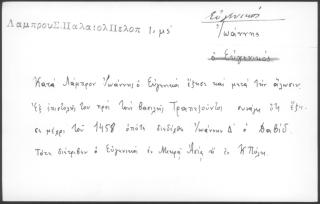 Λαμπρου Σ. Παλαιολ Πελοπ 1, μς´
Εὐγενικός
Ἰωάννης
ὁ Εὐγενικός
Κατὰ Λάμπρον Ἰωάννης ὁ Εὐγενικὸς ἔζησε καὶ μετὰ τὴν ἅλωσιν.
Ἐξ ἐπιστολῆς του πρὸ τοῦ βασιλ. Τραπεζοῦντος συνάγω ὅτι ἔζη-
σε μέχρι τοῦ 1458 ὁπότε διεδέχθη Ἰωάννην Δ´ ὁ Δαβίδ.
Τότε διέτριβεν ὁ Εὐγενικὸς ἐν Μικρᾷ Ἀσίᾳ ἢ ἐν Κ΄Πόλει.